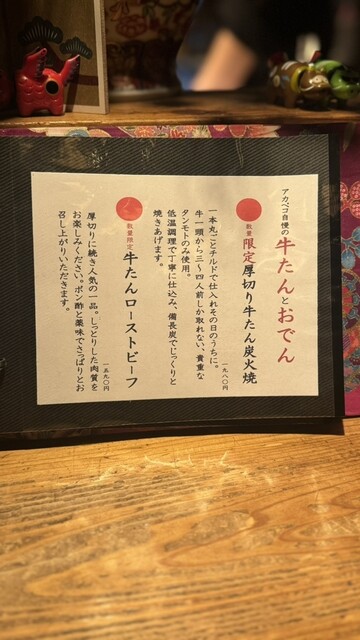 アカベコ自慢の牛たんとおでん
数量限定厚切り牛たん炭火焼
一九八〇円
一本丸ごとチルドで仕入れその日のうちに。
牛一頭から三〜四人前しか取れない、貴重な
タンモトのみ使用。
低温調理で丁寧に仕込み、備長炭でじっくりと
焼きあげます。
数量限定牛たんローストビーフ
一五九〇円
厚切りに続き人気の一品。しっとりした肉質を
お楽しみください。ポン酢と薬味でさっぱりとお
召し上がりいただきます。